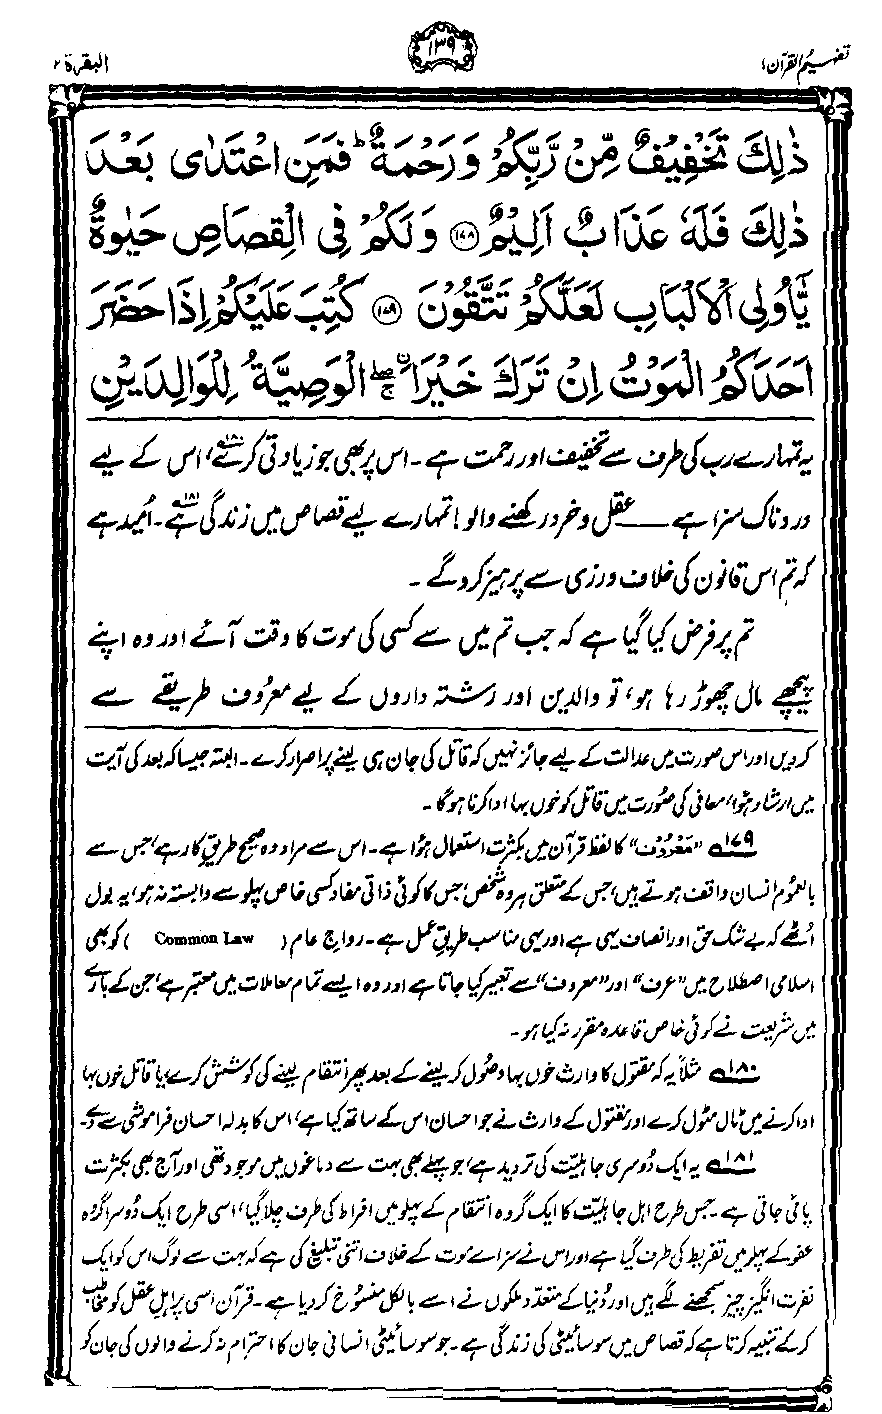 تفہیم القرآن ۱
۱۳۹
البقرة ۲
ذٰلِكَ تَخْفِيْفٌ مِّنْ رَّبِّكُمْ وَرَحْمَةٌ ؕ فَمَنِ اعْتَدٰى بَعْدَ
ذٰلِكَ فَلَهٗ عَذَابٌ اَلِيْمٌ ﴿۱۷۸﴾ وَلَكُمْ فِى الْقِصَاصِ حَيٰوةٌ
يّٰٓاُولِى الْاَلْبَابِ لَعَلَّكُمْ تَتَّقُوْنَ ﴿۱۷۹﴾ كُتِبَ عَلَيْكُمْ اِذَا حَضَرَ
اَحَدَكُمُ الْمَوْتُ اِنْ تَرَكَ خَيْرَا ۚۖ الْوَصِيَّةُ لِلْوَالِدَيْنِ
یہ تمہارے رب کی طرف سے تخفیف اور رحمت ہے۔ اس پر بھی جو زیادتی کرے۱۸۰، اس کے لیے
دردناک سزا ہے ــــ عقل و خرد رکھنے والو! تمہارے لیے قصاص میں زندگی ہے۱۸۱۔ اُمید ہے
کہ تم اس قانون کی خلاف ورزی سے پرہیز کرو گے۔
تم پر فرض کیا گیا ہے کہ جب تم میں سے کسی کی موت کا وقت آئے اور وہ اپنے
پیچھے مال چھوڑ رہا ہو، تو والدین اور رشتہ داروں کے لیے معرُوف طریقے سے
کر دیں اور اس صورت میں عدالت کے لیے جائز نہیں کہ قاتل کی جان ہی لینے پر اصرار کرے۔ البتہ جیسا کہ بعد کی آیت
میں ارشاد ہؤا، معافی کی صُورت میں قاتل کو خوں بہا ادا کرنا ہوگا۔
۱۷۹ "مَعْرُوْف" کا لفظ قرآن میں بکثرت استعمال ہؤا ہے۔ اس سے مراد وہ صحیح طریقِ کار ہے، جس سے
بالعمُوم انسان واقف ہوتے ہیں، جس کے متعلق ہر وہ شخص، جس کا کوئی ذاتی مفاد کسی خاص پہلو سے وابستہ نہ ہو، یہ بول
اُٹھے کہ بے شک حق اور انصاف یہی ہے اور یہی مناسب طریقِ عمل ہے۔ رواجِ عام (Common Law) کو بھی
اسلامی اصطلاح میں "عرف" اور "معروف" سے تعبیر کیا جاتا ہے اور وہ ایسے تمام معاملات میں معتبر ہے، جن کے بارے
میں شریعت نے کوئی خاص قاعدہ مقرر نہ کیا ہو۔
۱۸۰ مثلاً یہ کہ مقتول کا وارث خوں بہا وصُول کر لینے کے بعد پھر انتقام لینے کی کوشش کرے، یا قاتل خوں بہا
ادا کرنے میں ٹال مٹول کرے اور مقتول کے وارث نے جو احسان اس کے ساتھ کیا ہے، اس کا بدلہ احسان فراموشی سے دے۔
۱۸۱ یہ ایک دُوسری جاہلیّت کی تردید ہے، جو پہلے بھی بہت سے دماغوں میں موجود تھی اور آج بھی بکثرت
پائی جاتی ہے۔ جس طرح اہلِ جاہلیّت کا ایک گروہ انتقام کے پہلو میں افراط کی طرف چلا گیا، اسی طرح ایک دُوسرا گروہ
عفو کے پہلو میں تفریط کی طرف گیا ہے اور اس نے سزائے موت کے خلاف اتنی تبلیغ کی ہے کہ بہت سے لوگ اس کو ایک
نفرت انگیز چیز سمجھنے لگے ہیں اور دُنیا کے متعدّد ملکوں نے اسے بالکل منسُوخ کر دیا ہے۔ قرآن اسی پر اہلِ عقل کو مخاطب
کرکے تنبیہ کرتا ہے کہ قصاص میں سوسائیٹی کی زندگی ہے۔ جو سوسائیٹی انسانی جان کا احترام نہ کرنے والوں کی جان کو